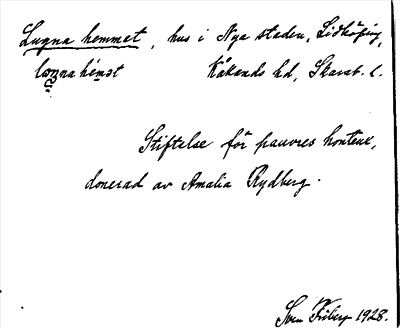 Lugna hemmet, hus i Nya staden, Lidköping,
lugna hémət Kåkends hd, Skarab. l.
Stiftelse för pauvres honteux,
donerad av Amalia Rydberg.
Sven Friberg 1928.